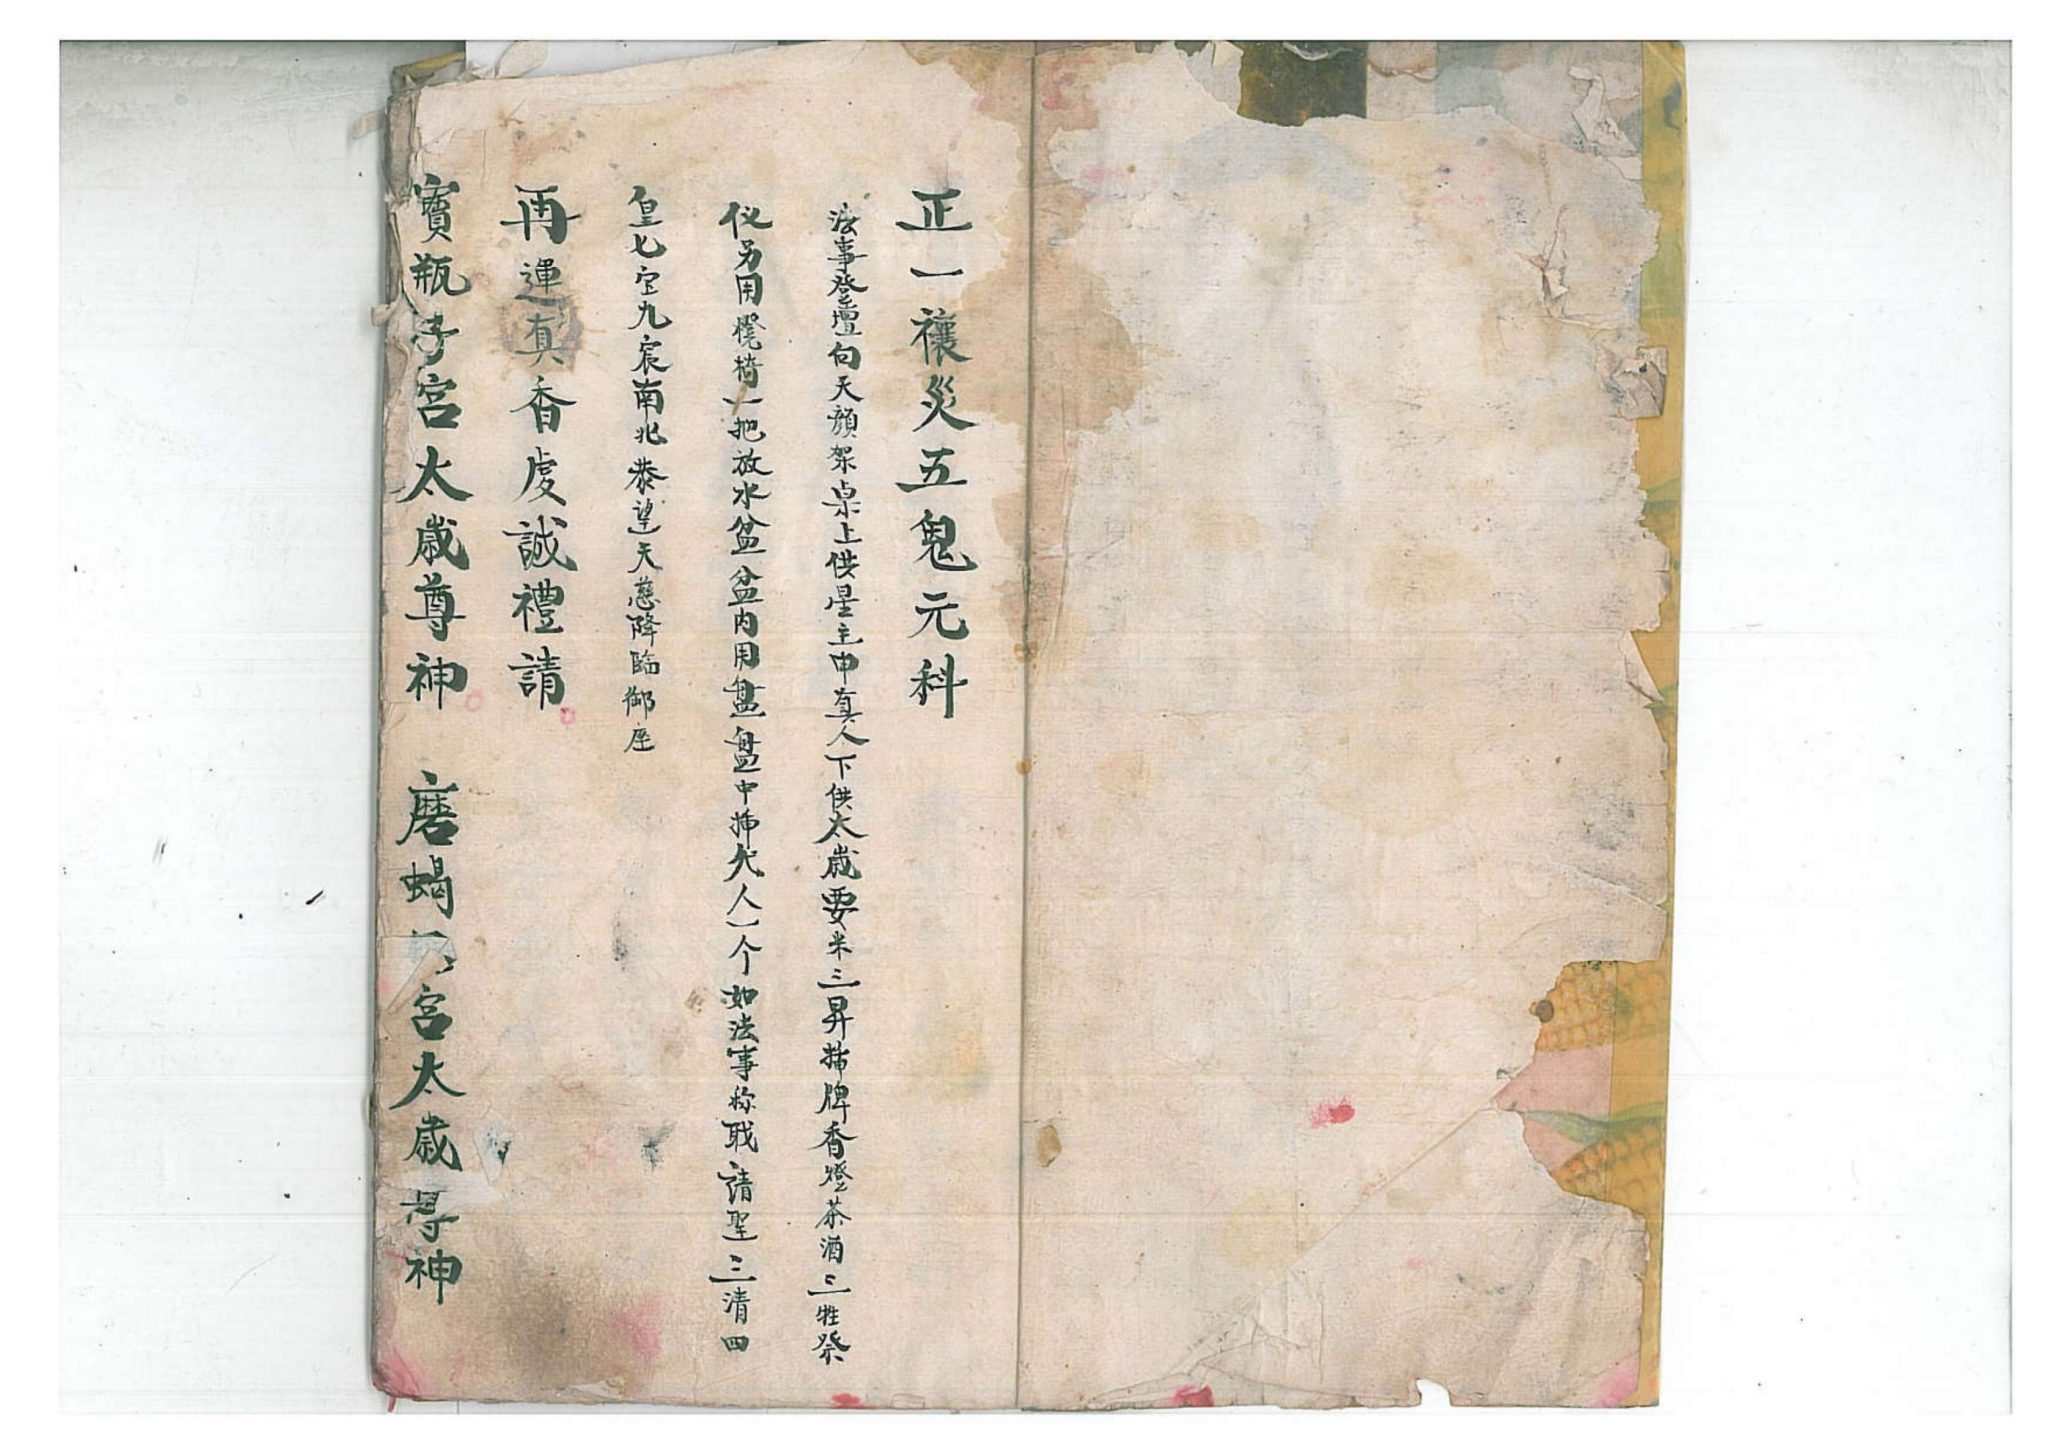 正一禳災五鬼元科
法事登壇向天顏架桌上供星主中真人下供太歲要米三昇揷牌香燈茶酒三牲祭
仪另用櫈椅一把放水盆盆内用盘盘中揷犬人一个如法事称職請聖三清四
皇七宝九宸南北恭望天慈降臨御座
再運真香虔誠禮請
寶瓶子宮太歲尊神　磨蝎宮太歲尊神